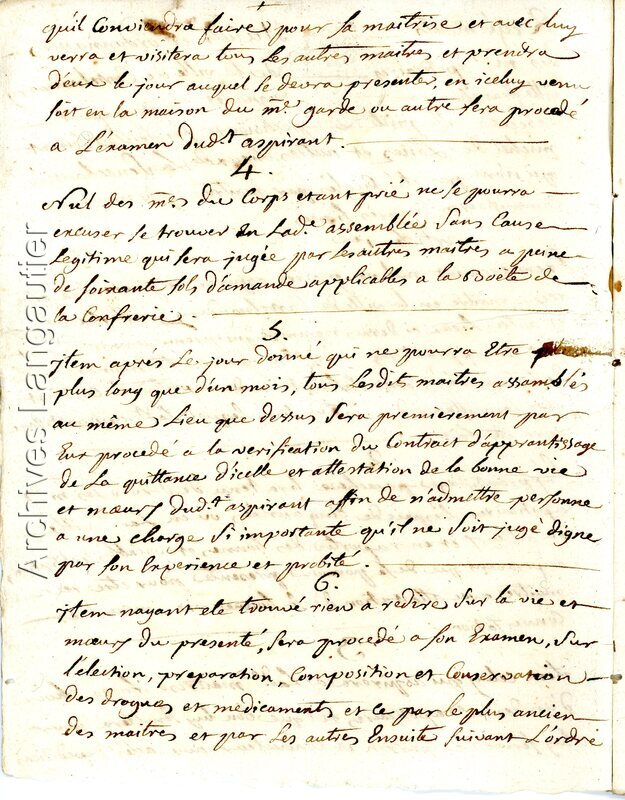 qu'il Conviendra faire pour sa maitrise et avec luy
verra et visitera tous Les autres maitres et prendra
d'eux le jour auquel se devra presenté, en iceluy venu
soit en la maison du me. garde ou autre sera procedé
a L'éxamen dud.t aspirant.
4.
Nul des mes. du Corps etant prié ne se pourra
excuser se trouver En Lad.e assemblée Sans Cause
Legitime qui sera jugée par Les autres maitres a peine
de soixante sols d'amande applicables a la Boëte de
la Confrerie.
5.
jtem aprés Le jour donné qui ne pourra Etre
plus long que d'un mois, tous Lesdits maitres assamblés
au même Lieu que dessus Sera premierement par
Eux procedé a la verification du Contract d'apprantissage
de La quittance d'icelle et attestation de la bonne vie
et mœurs dud.t aspirant affin de n'admettre personne
a une charge Si importante qu'il ne Soit jugé digne
par son Experience et probité.
6.
jtem nayant eté trouvé rien a redire Sur la vie et
mœurs du presenté, sera procedé a son Examen, Sur
l'élection, preparation, Composition et Conservation
des drogues et medicaments et ce par le plus ancien
des maitres et par Les autres Ensuite suivant L'ordre
Archives Langautier